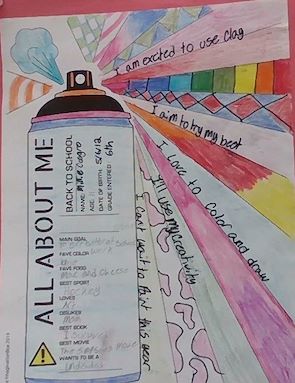 I am excited to use clay
I aim to try my best
I love to color and draw
I'll use my creativity
I can't wait to paint this year
ALL ABOUT ME
BACK TO SCHOOL
NAME:
AGE: 11
DATE OF BIRTH: 5/6/12
GRADE ENTERED: 6th
MAIN GOAL
FAVE COLOR
FAVE FOOD
Mac and cheese
BEST SPORT
Hockey
LOVES
DISLIKES
BEST BOOK
BEST MOVIE
WANTS TO BE A